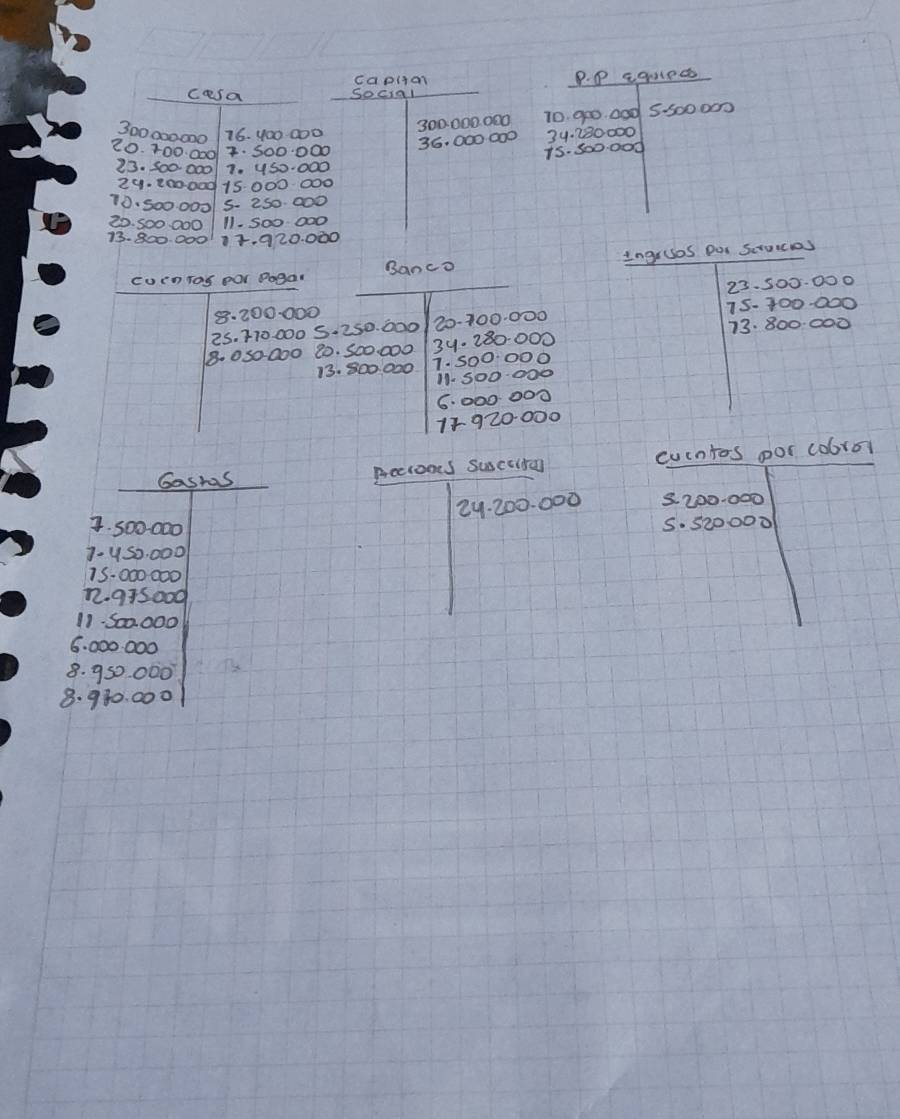 Caja
Capital
Social
P.P equipos
300.000.000 16.400.000
20.700.000 7.500.000
23.500.000 1.450.000
24.200.000 15.000.000
10.500.000 5.250.000
20.500.000 11.500.000
13.800.000 17.920.000
300.000.000
36.000.000
10.900.000 5.500.000
34.280.000
15.500.000
Cuentas por Pagar
8.200.000
25.710.000
8.050.000
Banco
5.250.000 20.700.000
20.500.000 34.280.000
13.800.000 7.500.000
11.500.000
6.000.000
17.920.000
Ingresos por Servicios
23.500.000
15.700.000
13.800.000
Gastos
7.500.000
1.450.000
15.000.000
12.975.000
11.500.000
6.000.000
8.950.000
8.970.000
Acciones Suscritas
24.200.000
Cuentas por cobrar
5.200.000
5.520.000